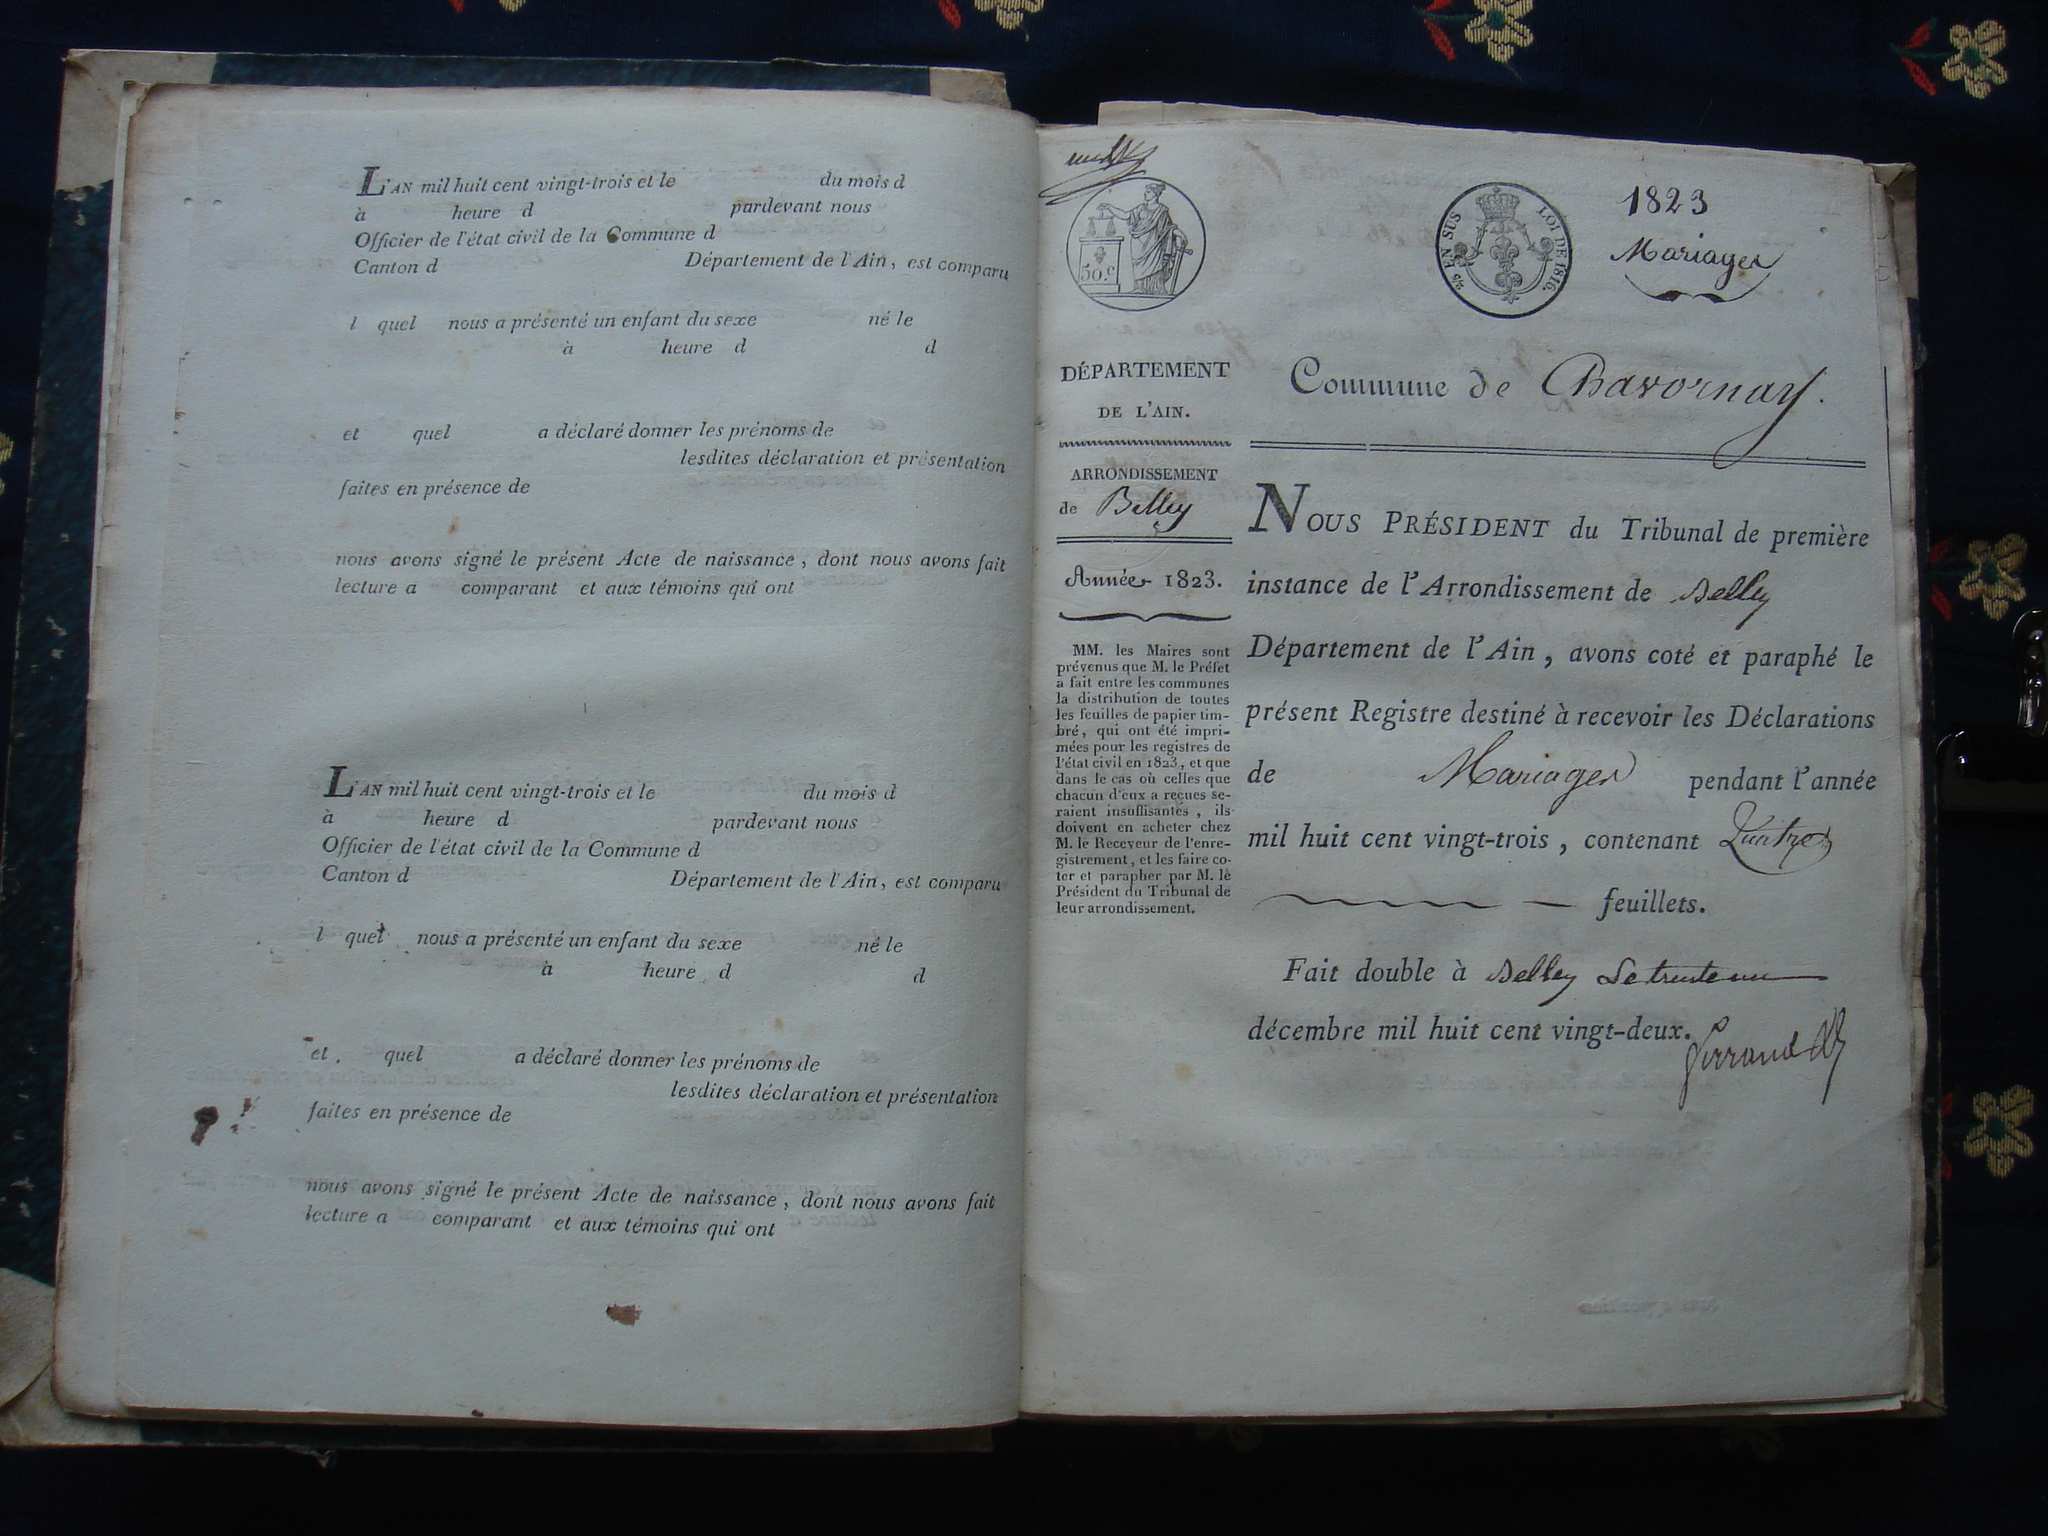 L'AN mil huit cent vingt-trois et le du mois d
à heure d pardevant nous
Officier de l'état civil de la Commune d
Canton d Département de l'Ain, est comparu
l quel nous a présenté un enfant du sexe né le
à heure d d
et quel a déclaré donner les prénoms de
lesdites déclaration et présentation
faites en présence de
nous avons signé le présent Acte de naissance, dont nous avons fait
lecture a comparant et aux témoins qui ont
L'AN mil huit cent vingt-trois et le du mois d
à heure d pardevant nous
Officier de l'état civil de la Commune d
Canton d Département de l'Ain, est comparu
l quel nous a présenté un enfant du sexe né le
à heure d d
et quel a déclaré donner les prénoms de
lesdites déclaration et présentation
faites en présence de
nous avons signé le présent Acte de naissance, dont nous avons fait
lecture a comparant et aux témoins qui ont
50.c
EN SUS LOI DE 1816.
1823
Mariages
DÉPARTEMENT
DE L'AIN.
ARRONDISSEMENT
de Belley
Année 1823.
MM. les Maires sont
prévenus que M. le Préfet
a fait entre les communes
la distribution de toutes
les feuilles de papier tim-
bré, qui ont été impri-
mées pour les registres de
l'état civil en 1823, et que
dans le cas où celles que
chacun d'eux a reçues se-
raient insuffisantes, ils
doivent en acheter chez
M. le Receveur de l'enre-
gistrement, et les faire co-
ter et parapher par M. le
Président du Tribunal de
leur arrondissement.
Commune de Chavornay.
NOUS PRÉSIDENT du Tribunal de première
instance de l'Arrondissement de Belley
Département de l'Ain, avons coté et paraphé le
présent Registre destiné à recevoir les Déclarations
de Mariages pendant l'année
mil huit cent vingt-trois, contenant
feuillets.
Fait double à Belley Le trente un
décembre mil huit cent vingt-deux.